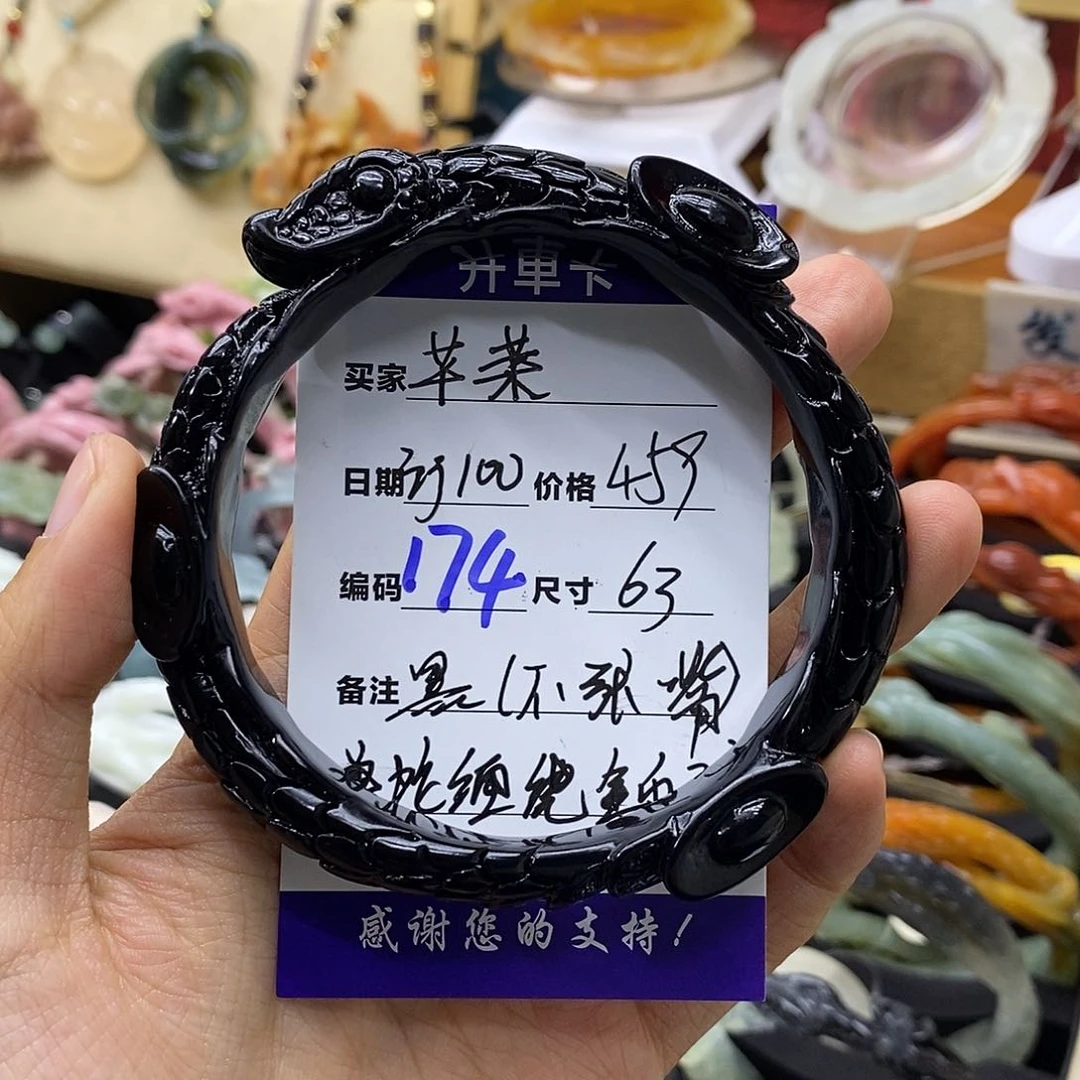 升車卡
买家 苹莱
日期 订100 价格 459
编码 174 尺寸 63
备注 黑(不张嘴)
蛇缠绕金
感谢您的支持!
发